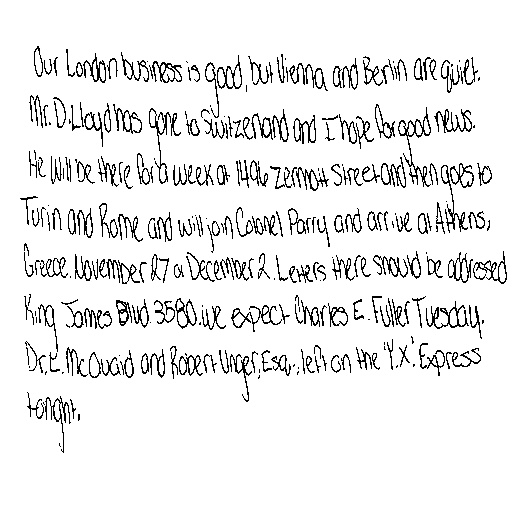 Our London business is good, but Vienna and Berlin are quiet.
Mr. D. Lloyd has gone to Switzerland and I hope for good news.
He will be there for a week at 1496 Zermott Street and then goes to
Turin and Rome and will join Colonel Parry and arrive at Athens,
Greece. November 27 or December 2. Letters there should be addressed
King James Blvd. 3580. we expect Charles E. Fuller Tuesday.
Dr. L. McQuaid and Robert Unger, Esq., left on the 'Y.X.' Express
tonght.